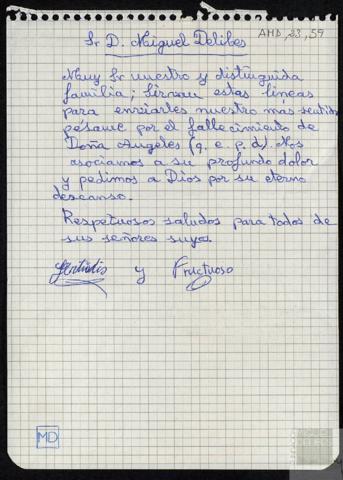 Sr D. Miguel Delibes
AMD, 23, 59
Muy Sr nuestro y distinguida
familia; Sirvan estas líneas
para enviarles nuestro más sentido
pésame por el fallecimiento de
Doña Angeles (q. e. p. d). Nos
asociamos a su profundo dolor
y pedimos a Dios por su eterno
descanso.
Respetuosos saludos para todos de
sus señores suyos.
y Fructuoso
MD